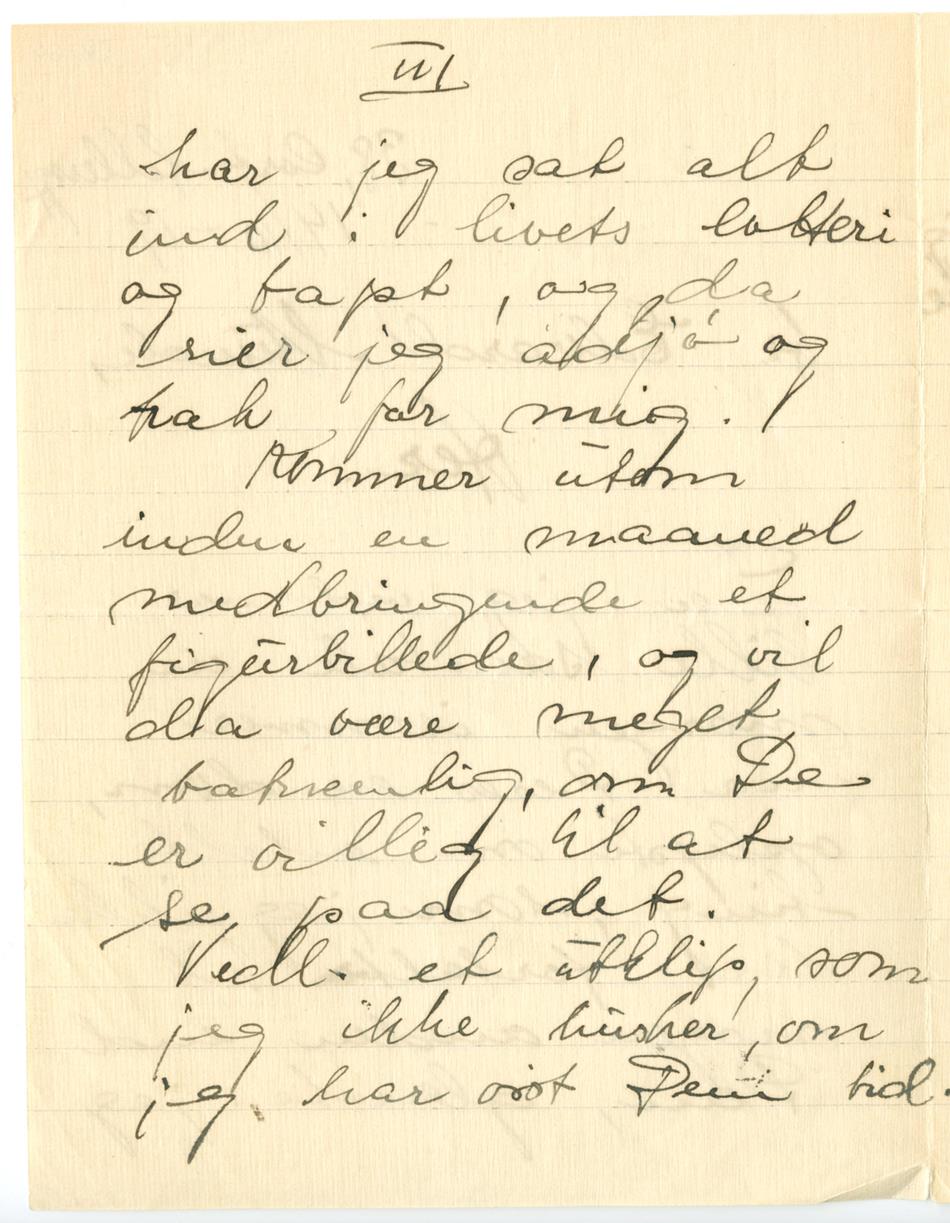 III
har jeg sat alt
ind i livets lotteri
og tapt, og da
sier jeg adjö og
tak for mig.
Kommer utom
inden en maaned
medbringende et
figurbillede, og vil
da være meget
taknemlig, om De
er villig til at
se paa det.
Vedl. et utklip, som
jeg ikke husker, om
jeg har vist Dem tid.